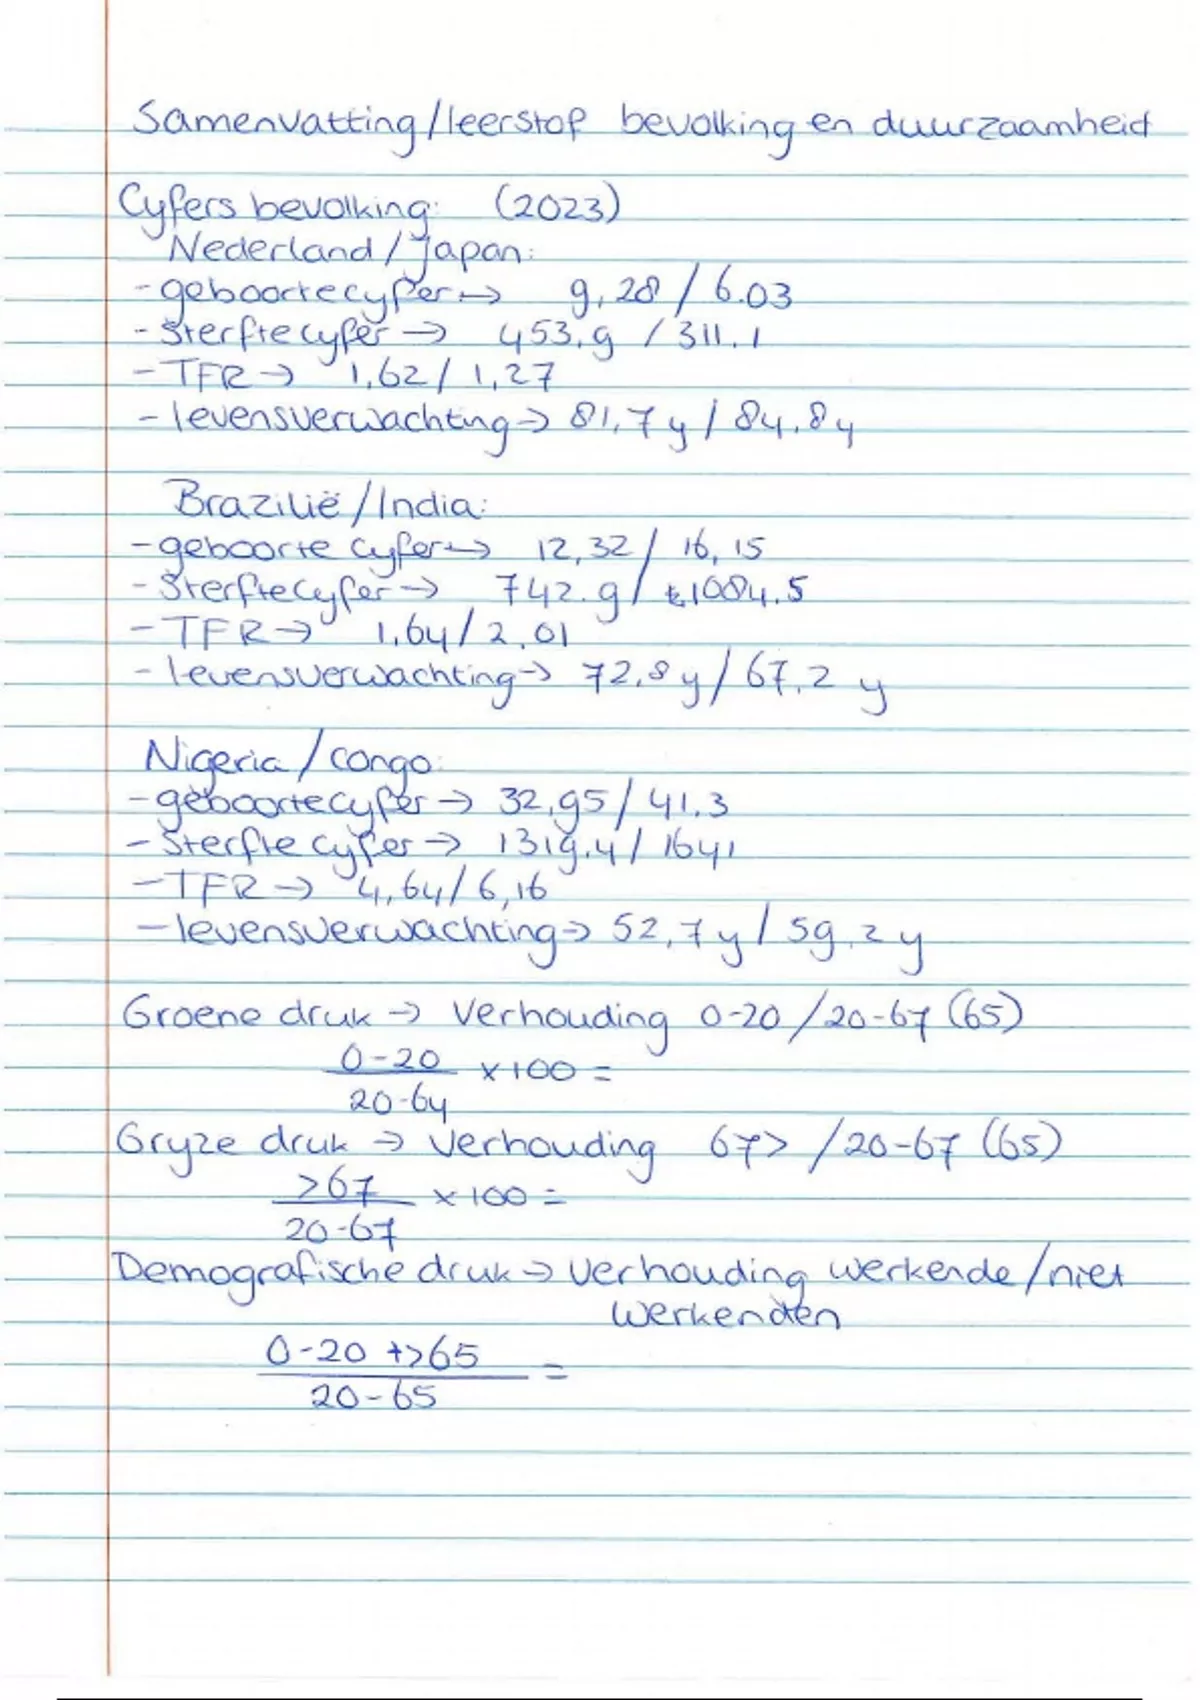 Samenvatting/leerstof bevolking en duurzaamheid
Cyfers bevolking: (2023)
Nederland/Japan:
- geboortecyfer → 9,28 / 6.03
- Sterftecyfer → 453.9 / 311.1
- TFR → 1,62 / 1,27
- levensverwachting → 81,7 y / 84.8 y
Brazilië/India:
- geboorte cyfer → 12,32 / 16,15
- Sterftecyfer → 742.9 / 1084.5
- TFR → 1.64 / 2,01
- levensverwachting → 72,8 y / 67,2 y
Nigeria / Congo:
- geboortecyfer → 32,95 / 41.3
- Sterfte cyfer → 1319.4 / 1641
- TFR → 4,64 / 6,16
- levensverwachting → 52,7 y / 59,2 y
Groene druk → Verhouding 0-20 / 20-67 (65)
0-20 x 100 =
20-64
Gryze druk → Verhouding 67> / 20-67 (65)
>67 x 100 =
20-67
Demografische druk → Verhouding werkende / niet
werkenden
0-20 + >65 =
20-65